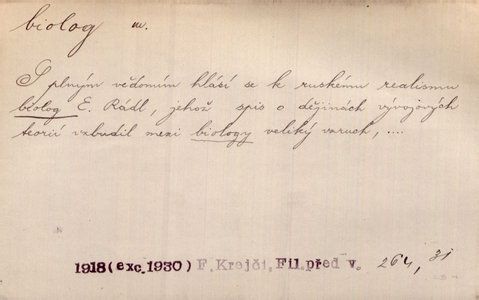 biolog m.
S plným vědomím hlásí se k ruskému realismu
biolog E. Rádl, jehož spis o dějinách vývojových
teorií vzbudil mezi biology veliký vzruch, ....
1918(exc.1930) F. Krejčí, Fil.před v. 264, 31